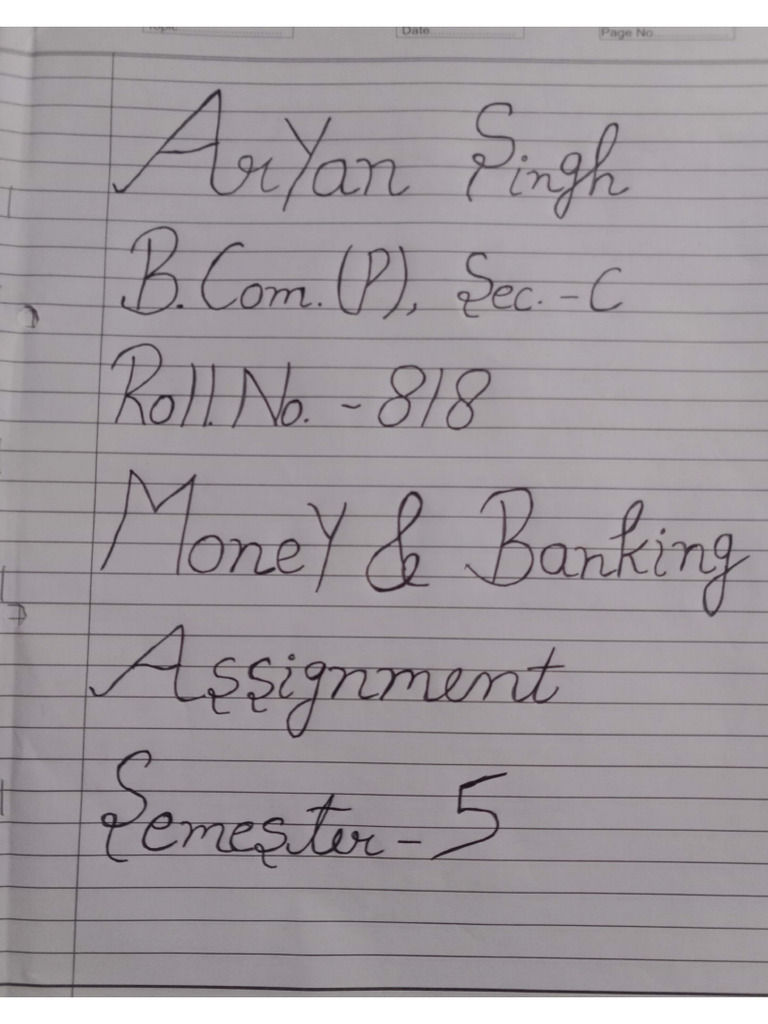 Topic Date Page No
Aryan Singh
B.Com.(P), Sec.-C
Roll.No. - 818
Money & Banking
Assignment
Semester - 5